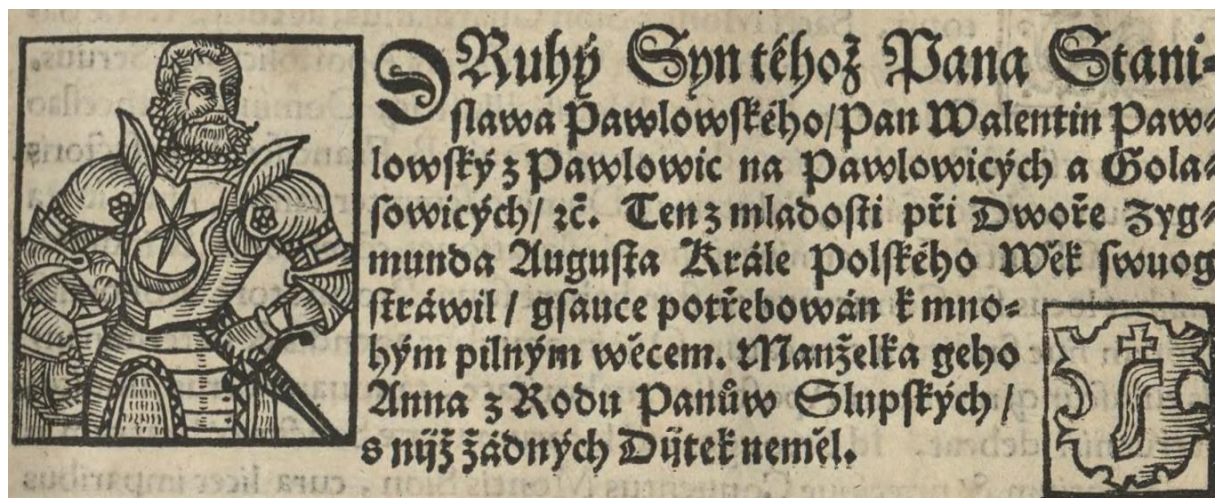 DRuhý Syn téhož Pana Stani-
slawa Pawlowského/Pan Walentin Paw-
lowský z Pawlowic na Pawlowicých a Gola-
sowicých/ ꝛč. Ten z mladosti při Dwoře Zyg-
munda Augusta Krále Polského Wěk swuog
stráwil / gsauce potřebowán k mno-
hým pilným wěcem. Manželka geho
Anna z Rodu Panůw Slupských /
s nijž žádných Dijtek neměl.